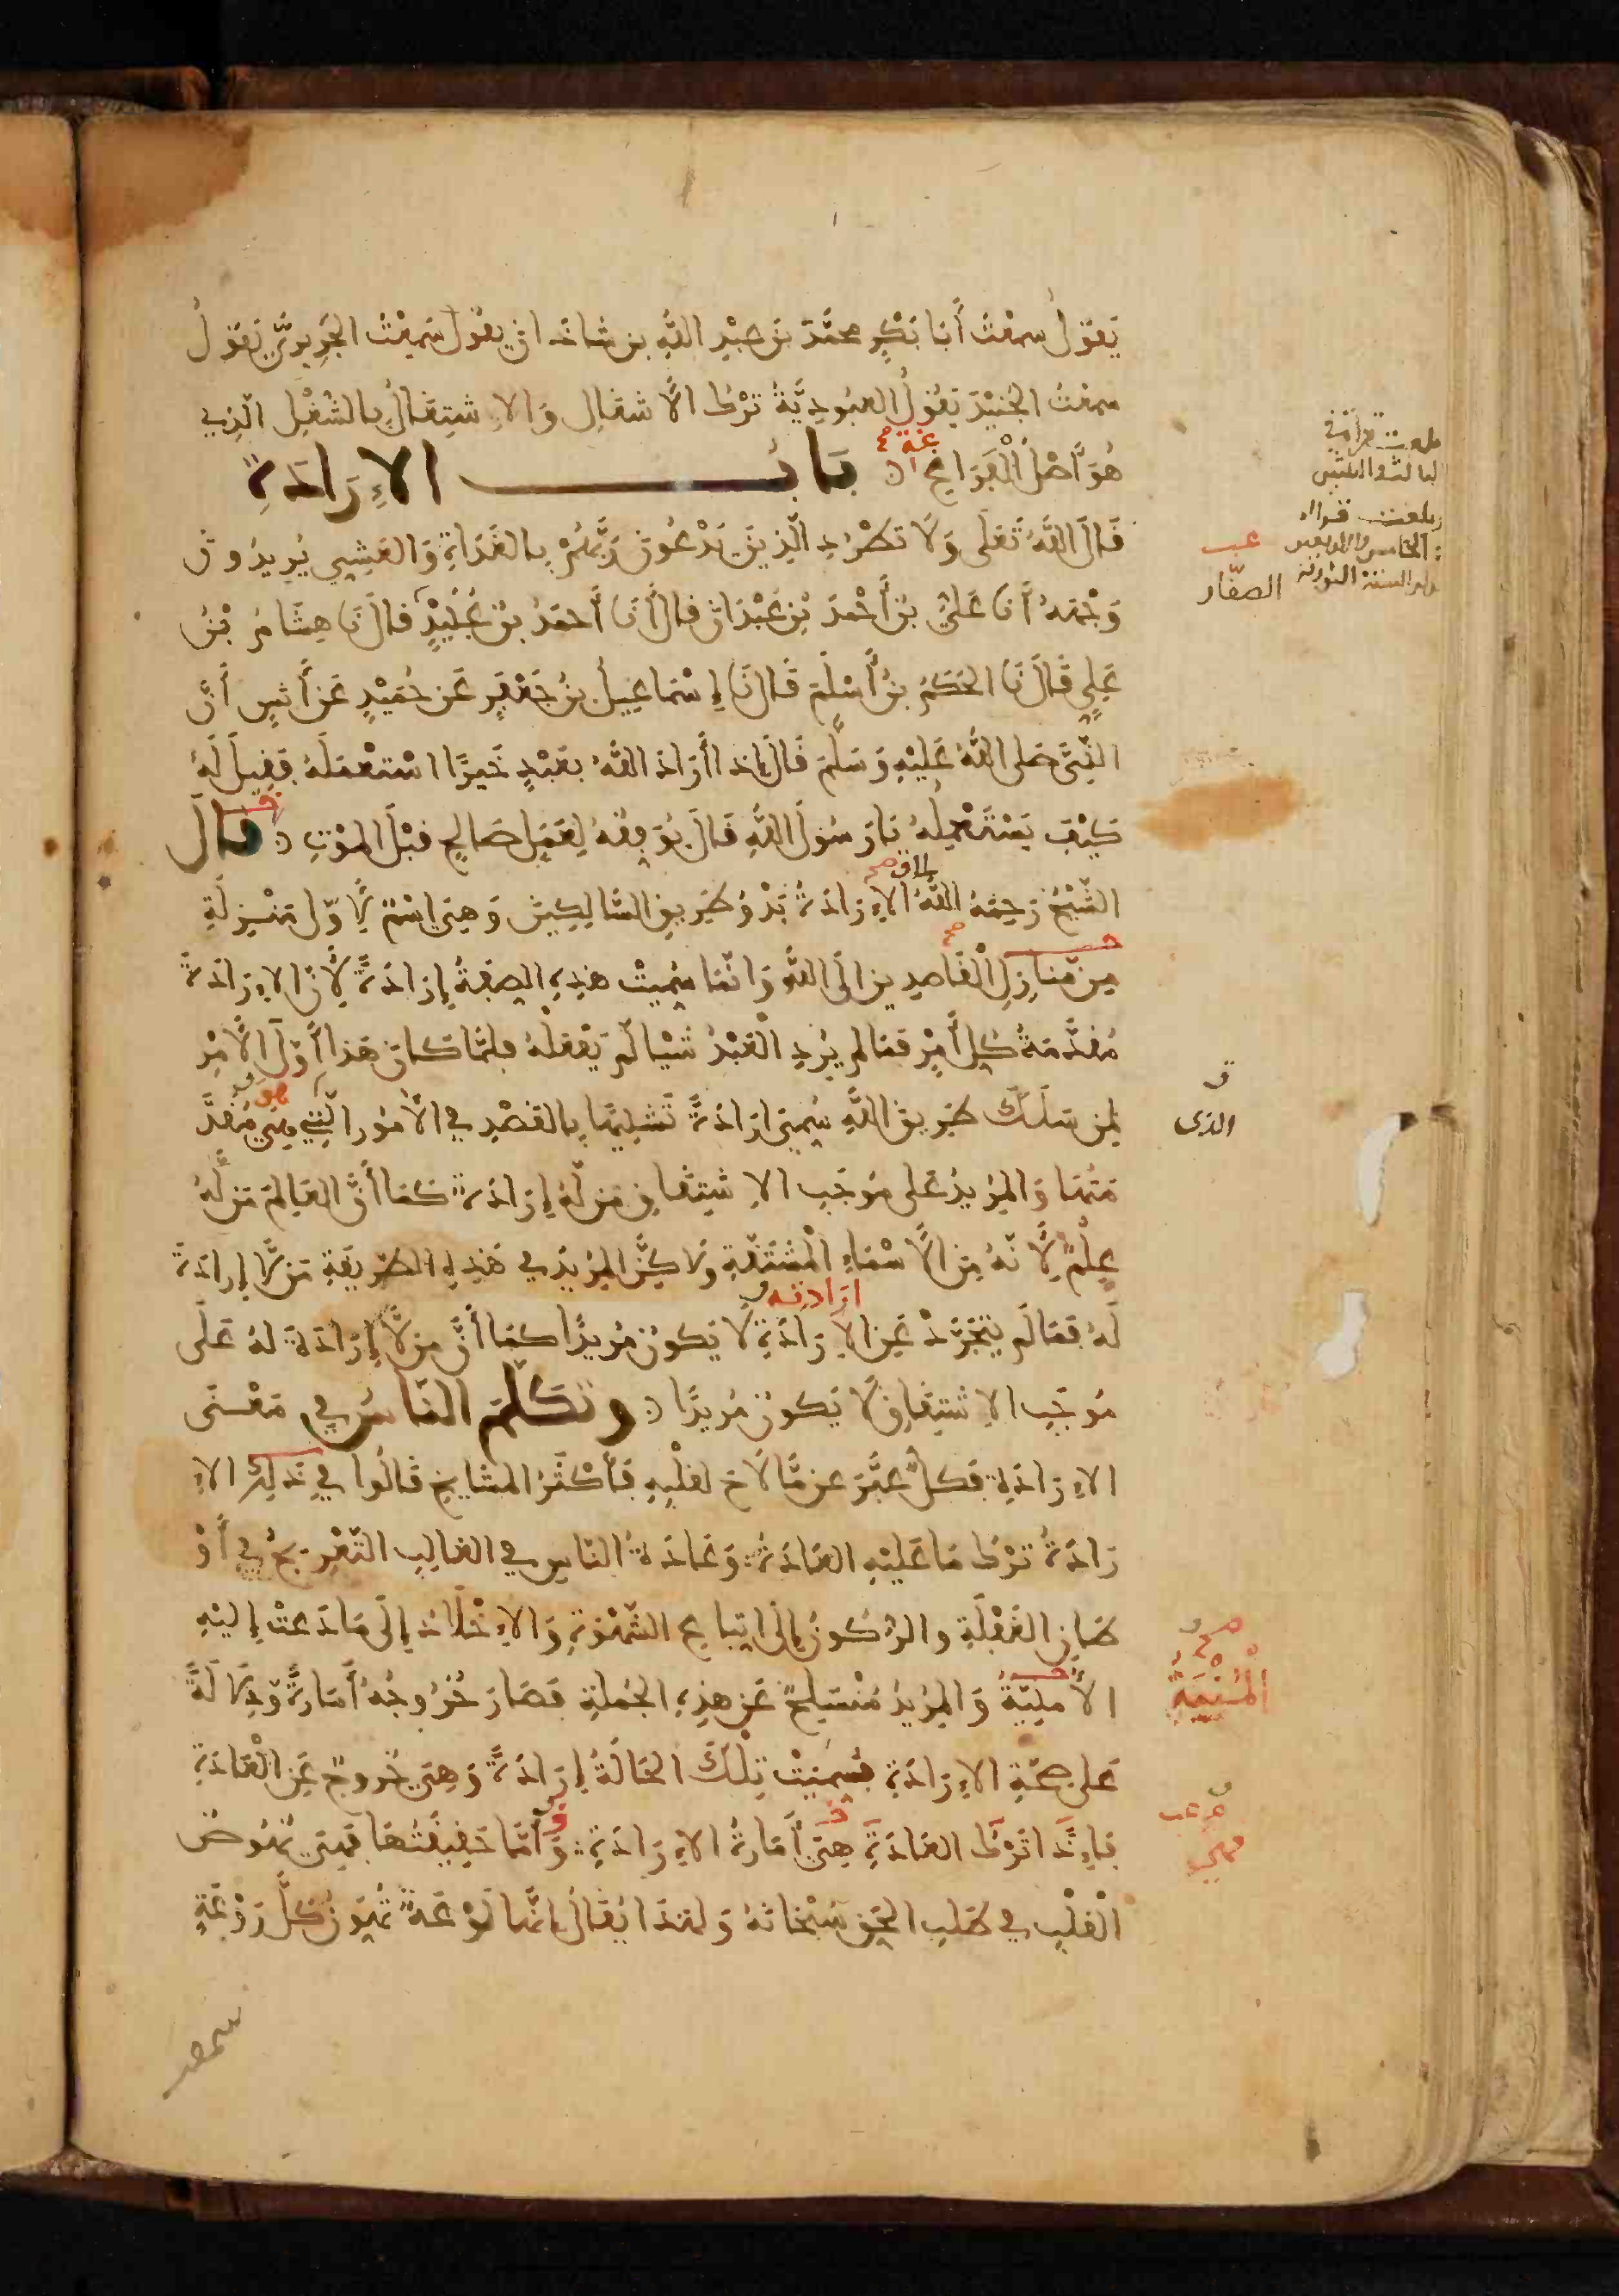 يَقول سمعْتُ أَبَا بَكْرٍ محمَّدَ بنَ عبْدِ اللَّهِ بن شاذان يقُول سَمِعْتُ الجَرِيرِيَّ يَقولُ
سمعْتُ الجُنَيْدَ يَقولُ العبُودِيَّةُ تَرْكُ الأشغال وَالاِشتِغَالُ بالشُّغْلِ الَّذِي
هُوَ أصْلُ الْفَرَاغِ
بَابُ الإِرَادَةِ
قَالَ اللَّهُ تَعَلَى وَلَا تَطْرُدِ الَّذِينَ يَدْعُونَ رَبَّهُمْ بِالغَدَاةِ وَالعَشِيِّ يُرِيدُونَ
وَجْهَهُ أَنَا عَلِيُّ بنُ أَحْمَدَ بْنِ عَبْدَانَ قالَ أَنَا أَحمَدُ بنُ عُبَيْدٍ قالَ نَا هِشَامُ بْنُ
عَلِيٍّ قَالَ نَا الحَكَمُ بنُ أَسْلَمَ قَالَ نَا إِسْمَاعِيلُ بنُ جَعْفَرٍ عَن حُمَيْدٍ عَن أَنَسٍ أَنَّ
النَّبِيَّ صَلى اللَّهُ عَلَيْهِ وَسَلَّمَ قَالَ إِذا أَرَادَ اللَّهُ بعَبْدٍ خَيرًا اسْتَعْمَلَهُ فَقِيلَ لَهُ
كَيْفَ يَسْتَعْمِلُهُ يَا رَسُولَ اللَّهِ قَالَ يُوَفِّقُهُ لِعَمَلٍ صَالِحٍ قَبْلَ المَوْتِ قَالَ
الشَّيْخُ رَحِمَهُ اللَّهُ الإِرَادَةُ بَدْوُ طَرِيقِ السَّالِكِينَ وَهِيَ اسْمٌ لِأَوَّل مَنْزِلَةٍ
مِن مَّنَازِلِ الْقَاصِدِينَ إلَى اللَّهِ وَانَّمَا سُمِّيَتْ هَذِهِ الصِّفَةُ إِرَادَةً لِأَنَّ الإِرَادَةَ
مُقَدَّمَةُ كُلِّ أَمْرٍ فَمَا لم يُرِدِ الْعَبْدُ شَيْئا لَم يَفْعَلْهُ فلمَّا كانَ هَذا أَوَّلَ الأَمْرِ
لِمَن سَلَكَ طَرِيقَ اللَّهِ سُمِّيَ إرَادَةً تَشْبِيهًا بِالقَصْدِ فِي الأُمُورِ الَّتِي هِيَ مُقَدَّ
مَتُهَا وَالمُرِيدُ عَلى مُوجَبِ الاِشتِقَاقِ مَن لَّهُ إِرَادَةٌ كَمَا أَنَّ العَالِمَ مَن لَّهُ
عِلْمٌ لِأَنَّهُ مِنَ الأَسْمَاءِ الْمُشْتَقَّةِ وَلاكِنَّ المُرِيدَ فِي هَذِهِ الطَّرِيقَةِ مَن لَّا إِرَادَةَ
لَهُ فَمَا لَم يَتَجَرَّدْ عَنِ الإِرَادَةِ لَا يَكونُ مُرِيدًا كمَا أَنَّ مَن لَّا إِرَادَةَ لَهُ عَلَى
مُوجَبِ الاِشتِقَاقِ لَا يَكونُ مُرِيدًا وَتَكَلَّمَ النَّاسُ فِي مَعْنَى
الإِرَادَةِ فَكلٌّ عَبَّرَ عن مَّا لَاحَ لقَلْبِهِ فَأَكْثَرُ المَشَايخِ قَالُوا فِي ذَلِكَ الإِ
رَادَةُ تَرْكُ مَا عَلَيْهِ العَادَةُ وَعَادَةُ النَّاسِ فِي الغَالِبِ التَّعْرِيجُ فِي أَوْ
طَانِ الغَفْلَةِ وَالرُّكُونُ إِلَى اتِّبَاعِ الشَّهْوَةِ وَالإِخْلَادُ إِلَى مَا دَعَتْ إِلَيْهِ
الأُمْنِيَّةُ وَالمُرِيدُ مُنْسَلِخٌ عَن هَذِهِ الجُمْلَةِ فَصَارَ خُرُوجُهُ أَمَارَةً وَدِلَالَةً
عَلى صِحَّةِ الإِرَادَةِ فَسُمِّيَتْ تِلْكَ الحَالَةُ إِرَادَةً وَهِيَ خُرُوجٌ عَنِ الْعَادَةِ
فَإِذَا تَرْكُ العَادَةِ هِيَ أَمَارَةُ الإِرَادَةِ وَأَمَّا حَقِيقَتُهَا فَهِيَ نُهُوضُ
الْقَلْبِ فِي طَلَبِ الحَقِّ سُبْحَانَهُ وَلهَذَا يُقَالُ إِنَّهَا لَوْعَةٌ تُهَوِّنُ كلَّ رَوْعَةٍ
الصفّار
الذى
إرَادته
هو
المُنْيَةُ
فهي